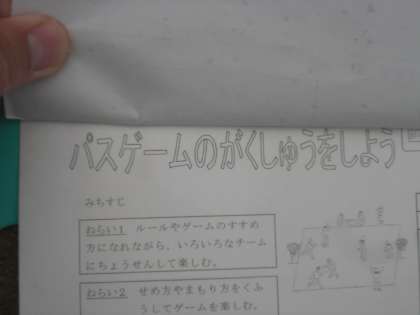 パスゲームのがくしゅうをしよう
みちすじ
ねらい1 ルールやゲームのすすめ
方になれながら、いろいろなチーム
にちょうせんして楽しむ。
ねらい2 せめ方やまもり方をくふ
うしてゲームを楽しむ。